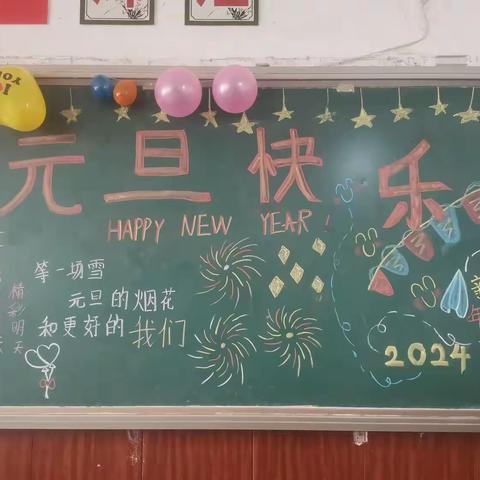 元旦快乐
HAPPY NEW YEAR!
等一场雪
元旦的烟花
和更好的我们
精彩明天
新
年
2024